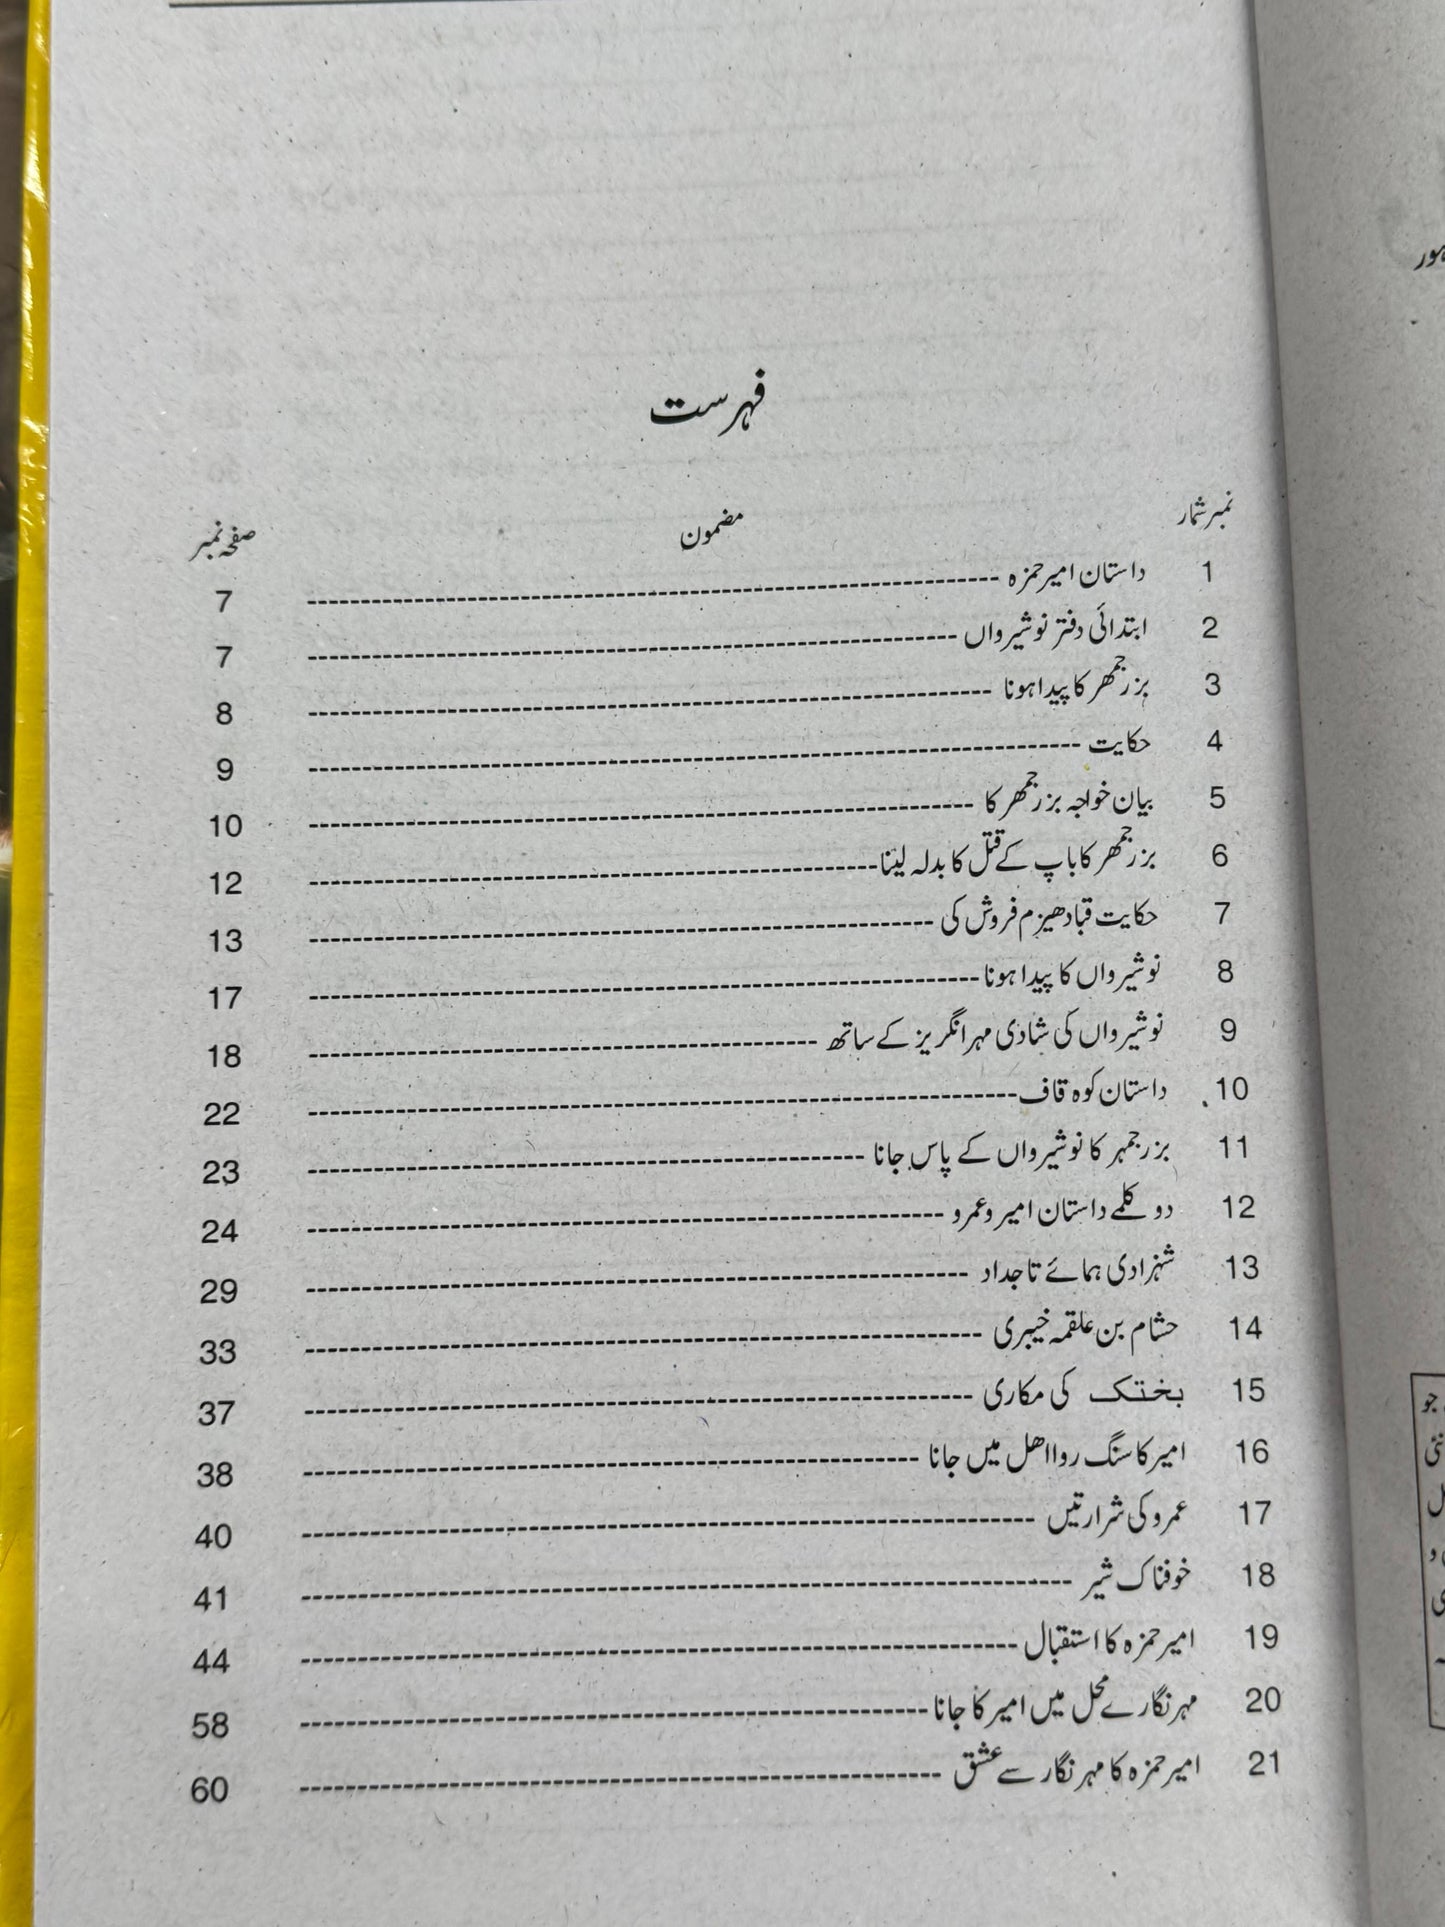 فہرست
نمبر شمار مضمون صفحہ نمبر
1 داستان امیر حمزہ 7
2 ابتدائی دفتر نوشیرواں 7
3 بزرجمھر کا پیدا ہونا 8
4 حکایت 9
5 بیان خواجہ بزرجمھر کا 10
6 بزرجمھر کا باپ کے قتل کا بدلہ لینا 12
7 حکایت قباد ھیزم فروش کی 13
8 نوشیرواں کا پیدا ہونا 17
9 نوشیرواں کی شادی مہر انگریز کے ساتھ 18
10 داستان کوہ قاف 22
11 بزرجمہر کا نوشیرواں کے پاس جانا 23
12 دو کلمے داستان امیر و عمرو 24
13 شہزادی ہمائے تاجداد 29
14 حشام بن علقمہ خیبری 33
15 بختک کی مکاری 37
16 امیر کا سنگ رواا ھل میں جانا 38
17 عمرو کی شرارتیں 40
18 خوفناک شیر 41
19 امیر حمزہ کا استقبال 44
20 مہر نگار ے محل میں امیر کا جانا 58
21 امیر حمزہ کا مہر نگار سے عشق 60